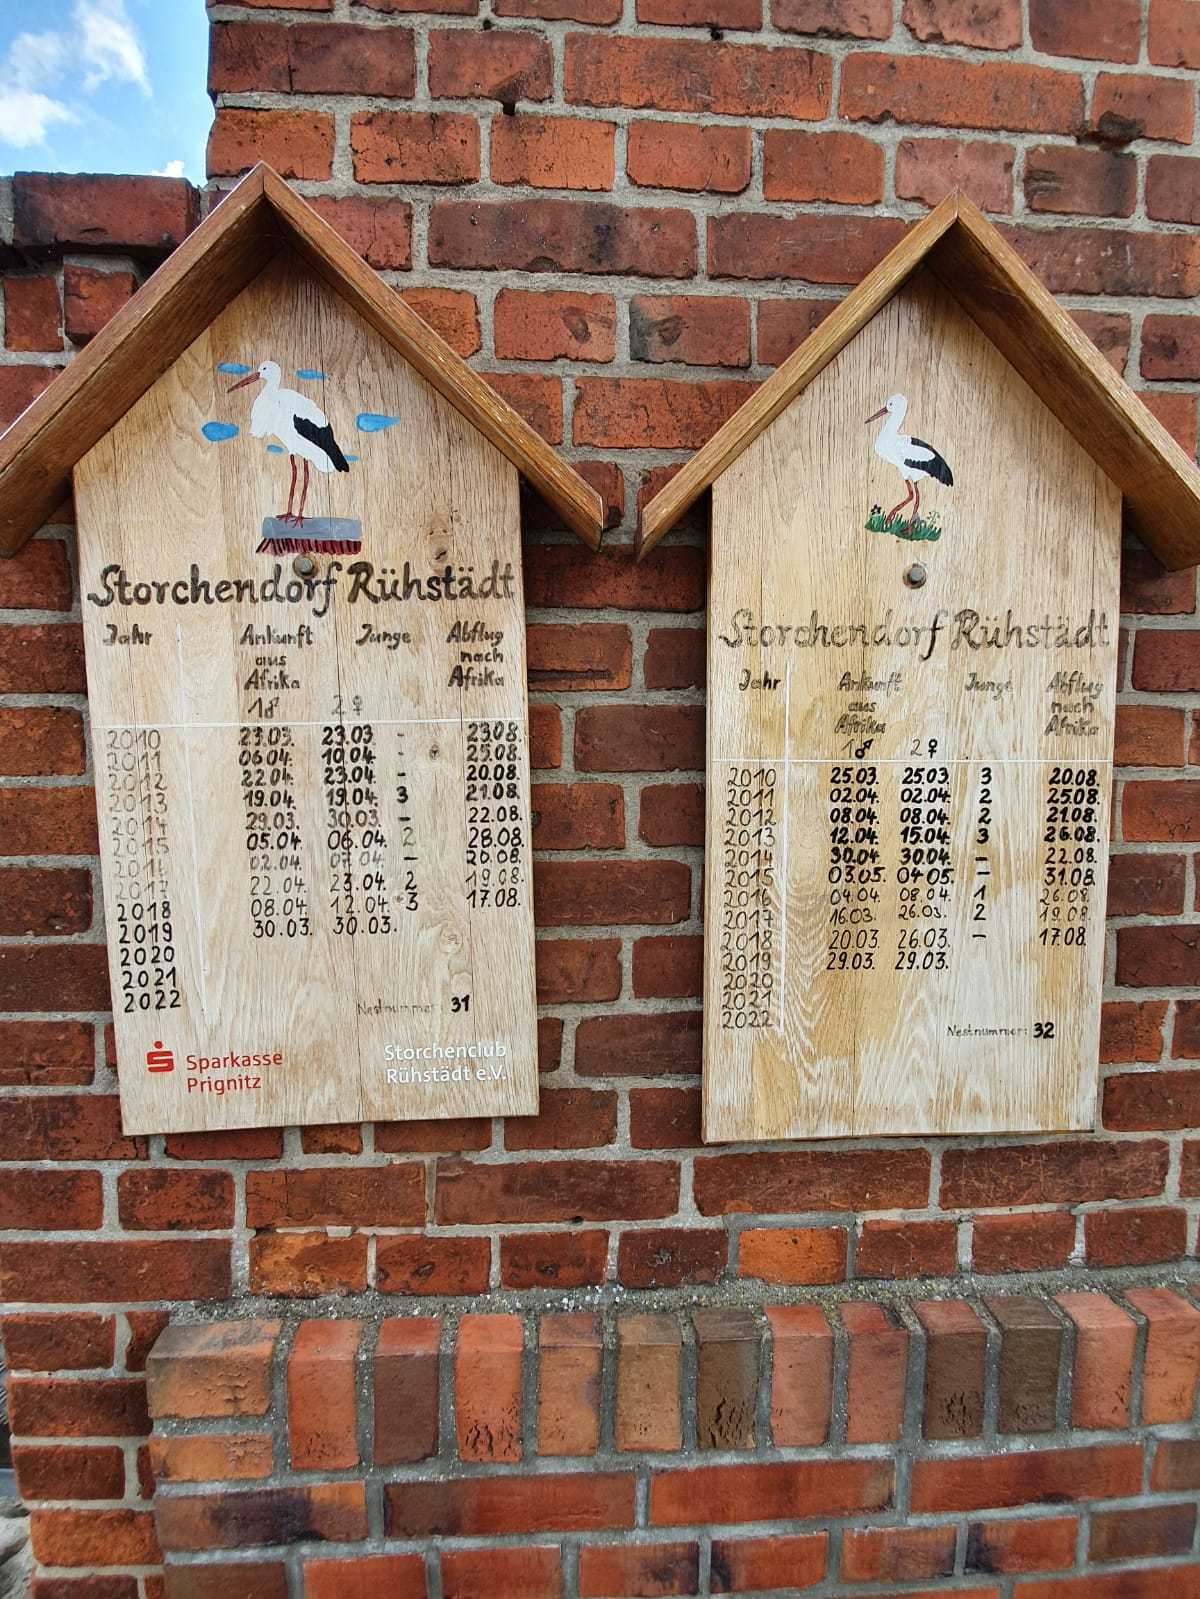 Storchendorf Rühstädt
Jahr Ankunft Junge Abflug
aus nach
Afrika Afrika
1♂ 2♀
2010 23.03. 23.03 - 23.08.
2011 06.04. 10.04. - 25.08.
2012 22.04. 23.04. - 20.08.
2013 19.04. 19.04. 3 21.08.
2014 29.03. 30.03. - 22.08.
2015 05.04. 06.04. 2 28.08.
2016 02.04. 07.04. - 20.08.
2017 22.04. 23.04. 2 19.08.
2018 08.04. 12.04. 3 17.08.
2019 30.03. 30.03.
2020
2021
2022
Nestnummer: 31
Sparkasse
Prignitz
Storchenclub
Rühstädt e.V.
Storchendorf Rühstädt
Jahr Ankunft Junge Abflug
aus nach
Afrika Afrika
1♂ 2♀
2010 25.03. 25.03. 3 20.08.
2011 02.04. 02.04. 2 25.08.
2012 08.04. 08.04. 2 21.08.
2013 12.04. 15.04. 3 26.08.
2014 30.04. 30.04. - 22.08.
2015 03.05. 04.05. - 31.08.
2016 04.04. 08.04. 1 26.08.
2017 16.03. 26.03. 2 19.08.
2018 20.03. 26.03. - 17.08.
2019 29.03. 29.03.
2020
2021
2022
Nestnummer: 32